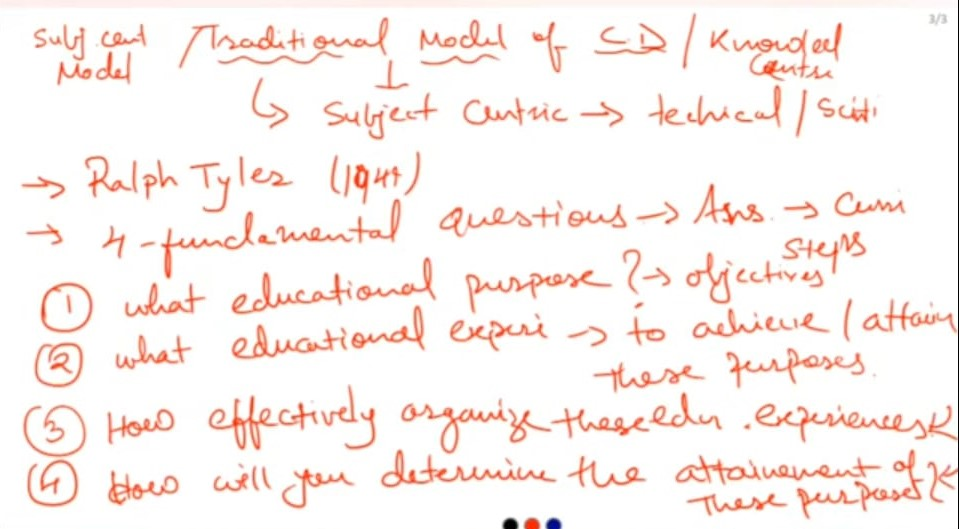 3/3
Subj. cent / Traditional Model of CD / Knowled
Model Centri
↳ Subject Centric → techical / Sciti
→ Ralph Tyler (1949)
→ 4-fundamental questions → Ans. → Curri
steps
① what educational purpose? → objectives
② what educational experi → to achieve / attain
these purposes.
③ How effectively organize these edu. experiences
④ How will you determine the attainement of
These purposes